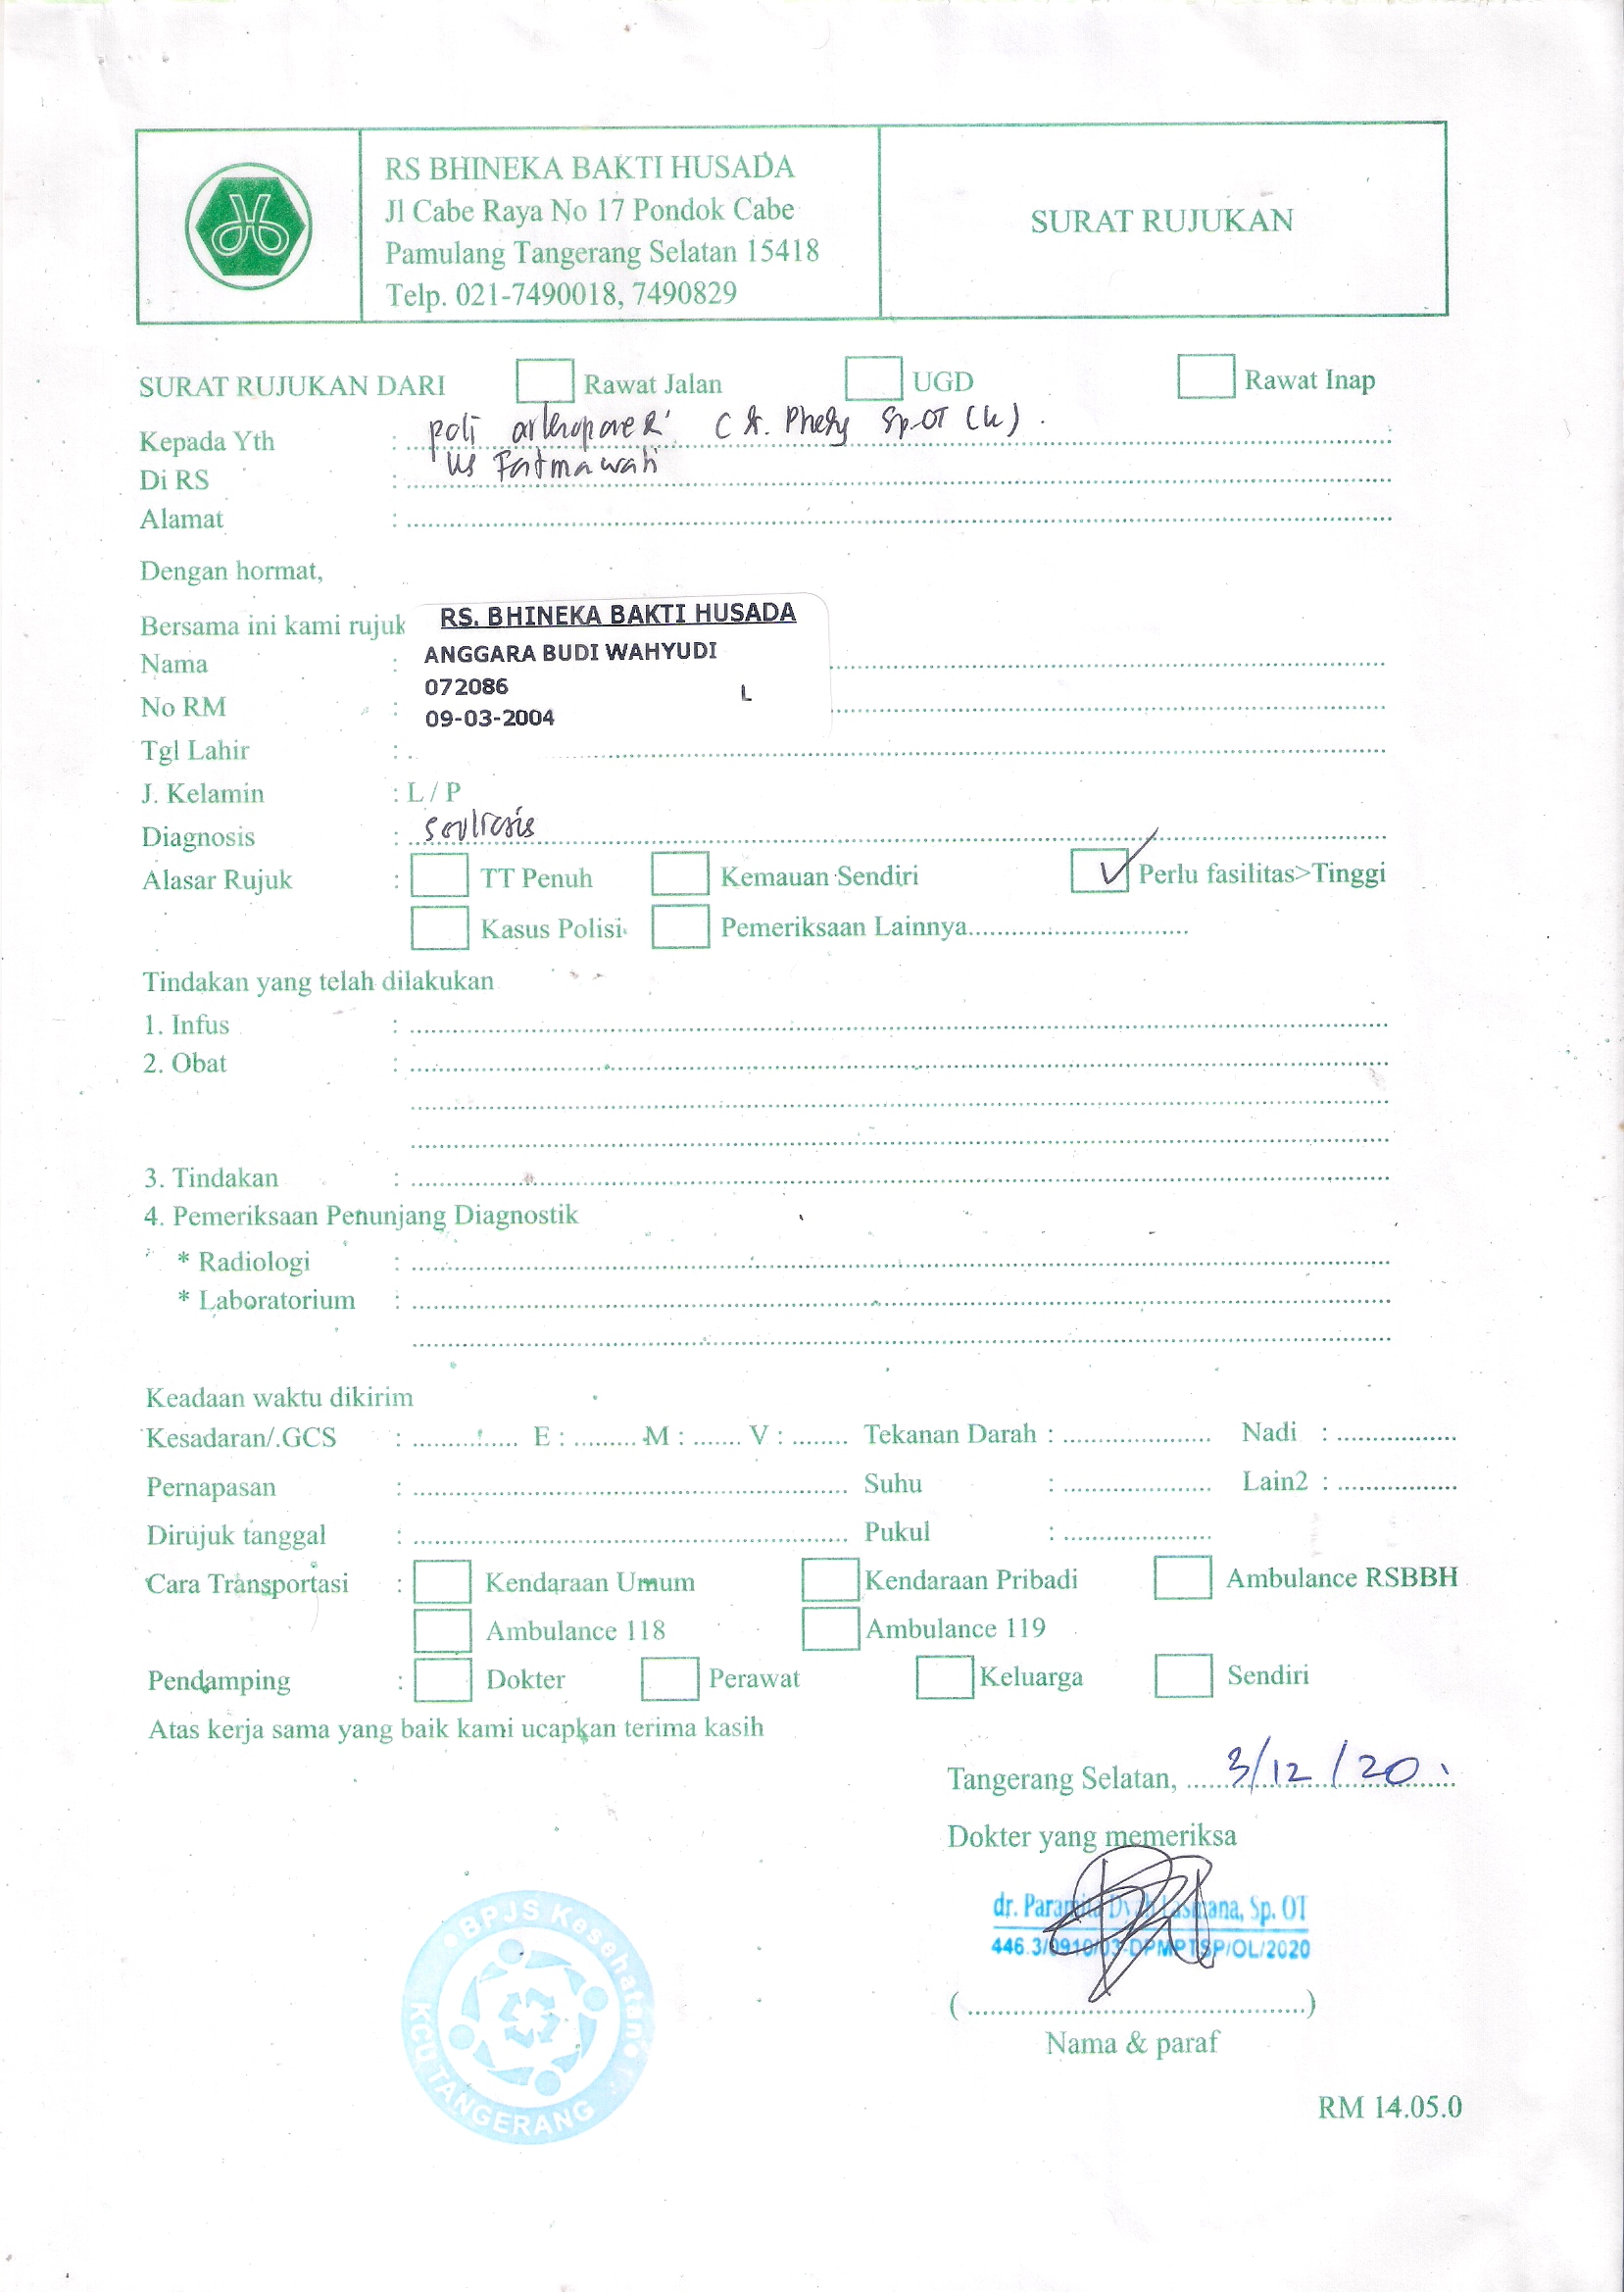 RS BHINEKA BAKTI HUSADA
Jl Cabe Raya No 17 Pondok Cabe
Pamulang Tangerang Selatan 15418
Telp. 021-7490018, 7490829
SURAT RUJUKAN
SURAT RUJUKAN DARI Rawat Jalan UGD Rawat Inap
Kepada Yth : poli Sp.OT (K).
Di RS : RS Fatmawati
Alamat :
Dengan hormat,
Bersama ini kami rujuk
RS. BHINEKA BAKTI HUSADA
Nama : ANGGARA BUDI WAHYUDI
No RM : 072086 L
09-03-2004
Tgl Lahir :
J. Kelamin : L / P
Diagnosis :
Alasar Rujuk : TT Penuh Kemauan Sendiri ✓ Perlu fasilitas>Tinggi
Kasus Polisi Pemeriksaan Lainnya
Tindakan yang telah dilakukan
1. Infus :
2. Obat :
3. Tindakan :
4. Pemeriksaan Penunjang Diagnostik
* Radiologi :
* Laboratorium :
Keadaan waktu dikirim
Kesadaran/.GCS : E : M : V : Tekanan Darah : Nadi :
Pernapasan : Suhu : Lain2 :
Dirujuk tanggal : Pukul :
Cara Transportasi : Kendaraan Umum Kendaraan Pribadi Ambulance RSBBH
Ambulance 118 Ambulance 119
Pendamping : Dokter Perawat Keluarga Sendiri
Atas kerja sama yang baik kami ucapkan terima kasih
Tangerang Selatan, 3/12/20
Dokter yang memeriksa
dr. Sp. OT
446.3/0910/03-DPMPTSP/OL/2020
(                    )
Nama & paraf
BPJS Kesehatan
KCU TANGERANG
RM 14.05.0